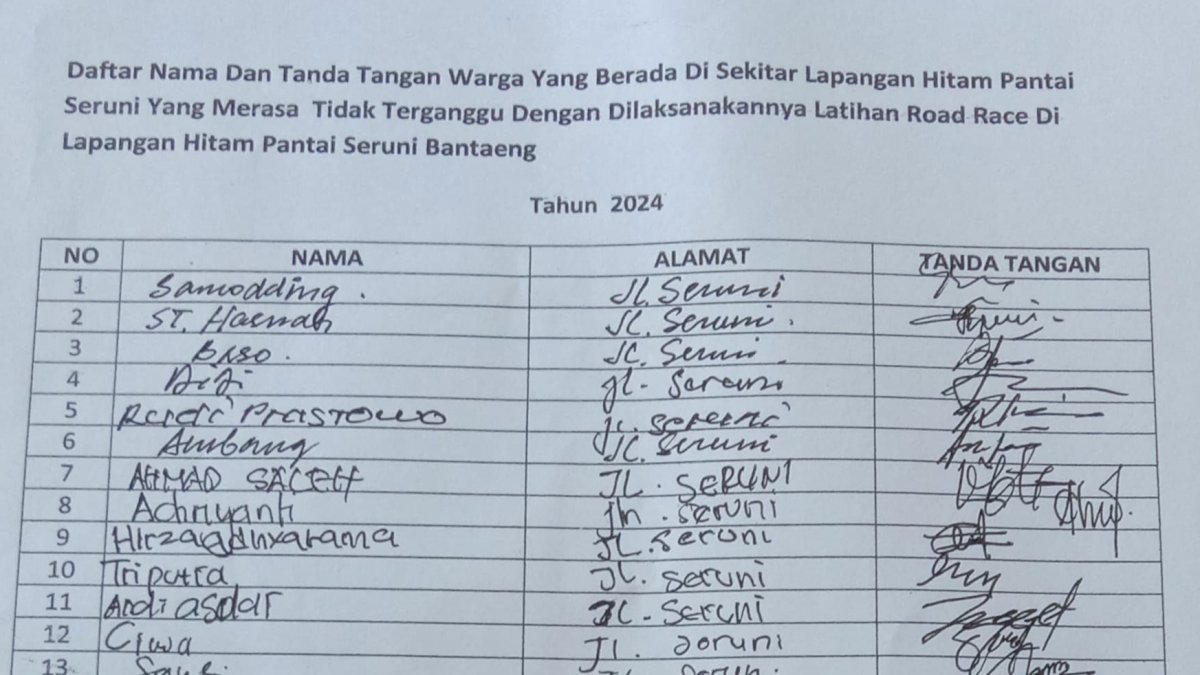 Daftar Nama Dan Tanda Tangan Warga Yang Berada Di Sekitar Lapangan Hitam Pantai
Seruni Yang Merasa Tidak Terganggu Dengan Dilaksanakannya Latihan Road Race Di
Lapangan Hitam Pantai Seruni Bantaeng
Tahun 2024
NO NAMA ALAMAT TANDA TANGAN
1 Samodding. Jl. Seruni
2 ST. Hasnah Jl. Seruni.
3 Baso. Jl. Seruni
4 jl. Seruni
5 Rudi Prastowo Jl. Seruni
6 Ambang Jl. Seruni
7 AHMAD SALEH JL. SERUNI
8 Achriyanti jln. Seruni
9 JL. seruni
10 Triputra JL. seruni
11 Andi asdar JL. Seruni
12 Ciwa JL. seruni
13